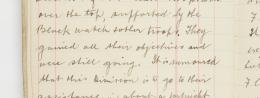 over the top, supported by the
Black watch & other troops. They
gained all their objectives and
were still going. It is rumoured
that this Division is to go to their
assistance in about a fortnight